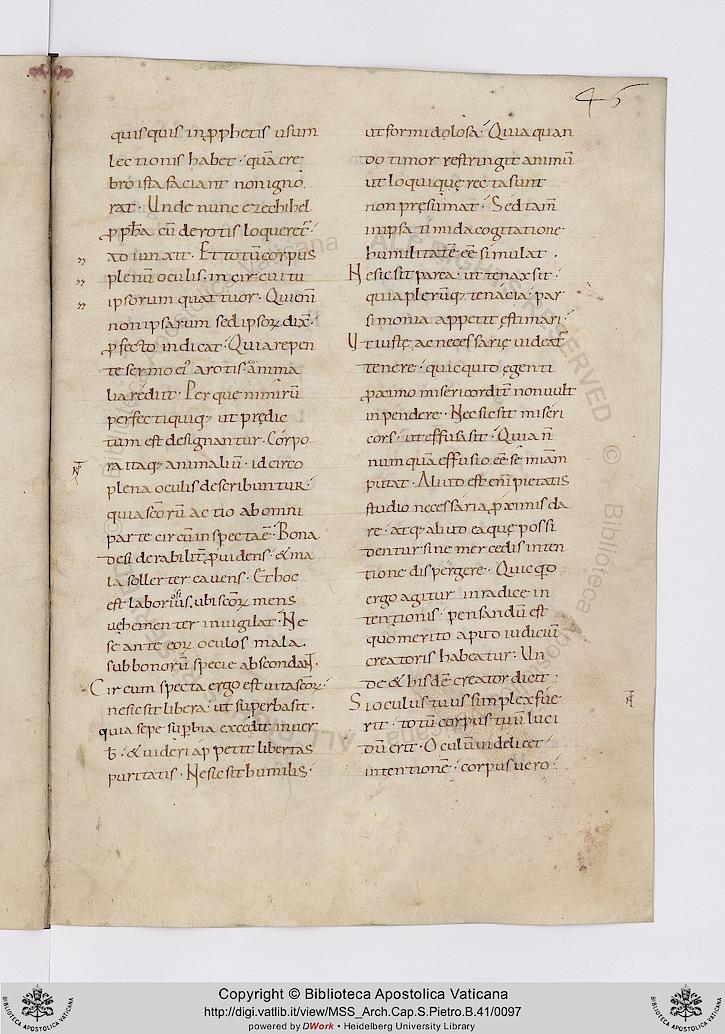 46
quisquis in ꝓphetis usum
lectionis habet · quā cre
bro ista faciant non igno
rat · Unde nunc ezechihel
ꝓpħa cū de rotis loqueret᷑ ·
adiunxit · Et totū corpus
plenū oculis · in circuitu
ipsorum quattuor · Qui enī
non ipsarum sed ipsoꝝ dix̄ ·
ꝓfecto indicat · Quia repen
te sermo ei᷒ a rotis ad anima
lia rediit · Per que nimirū
perfecti quiq; ut prędic
tum est designantur · Corpo
ra itaq; animaliū · idcirco
plena oculis describuntur ·
quia sc̄orū actio ab omni
parte circūinspecta ē · Bona
desiderabilit̄ ꝓuidens · & ma
la sollerter cauens · Et hoc
est laboriosius · ubi sc̄oꝝ mens
uehementer inuigilat · Ne
se ante eoꝝ oculos mala
sub bonorū specie abscondaNT ·
Circumspecta ergo est uita sc̄oꝝ ·
ne sic sit libera · ut superba sit ·
quia sepe suꝑbia excedit in uer
b · & uideri appetit libertas
puritatis · Ne sic sit humilis ·
ut formidolosa · Quia quan
do timor restringit animū
ut loqui quę recta sunt
non pręsumat · Sed tam̄
in ipsa timida cogitatione
humilitatē ēē simulat ·
Ne sic sit parca · ut tenax sit ·
quia plerūq; tenacia · par
simonia appetit ęstimari ·
Ut iuste, ac necessarię uideat᷑
tenere · quic quid ęgenti
ꝓximo misericordit̄ non uult
inpendere · Ne sic sit miseri
cors · ut effusa sit · Quia n̄
numquā effusio ēē se miam̄
putat · Aliud est enī pietatis
studio necessaria ꝓximis da
re · atq; aliud ea quę possi
dentur sine mercedis inten
tione dispergere · Quic qd̄
ergo agitur in radice in
tentionis · pensandū est
quo merito apud iudiciū
creatoris habeatur · Un
de & hisdē creator dicit :
Si oculus tuus simplex fue
rit · totū corpus tuū luci
dū erit · Oculū uidelicet
intentionē · corpus uero
Copyright © Biblioteca Apostolica Vaticana
http://digi.vatlib.it/view/MSS_Arch.Cap.S.Pietro.B.41/0097
powered by DWork • Heidelberg University Library